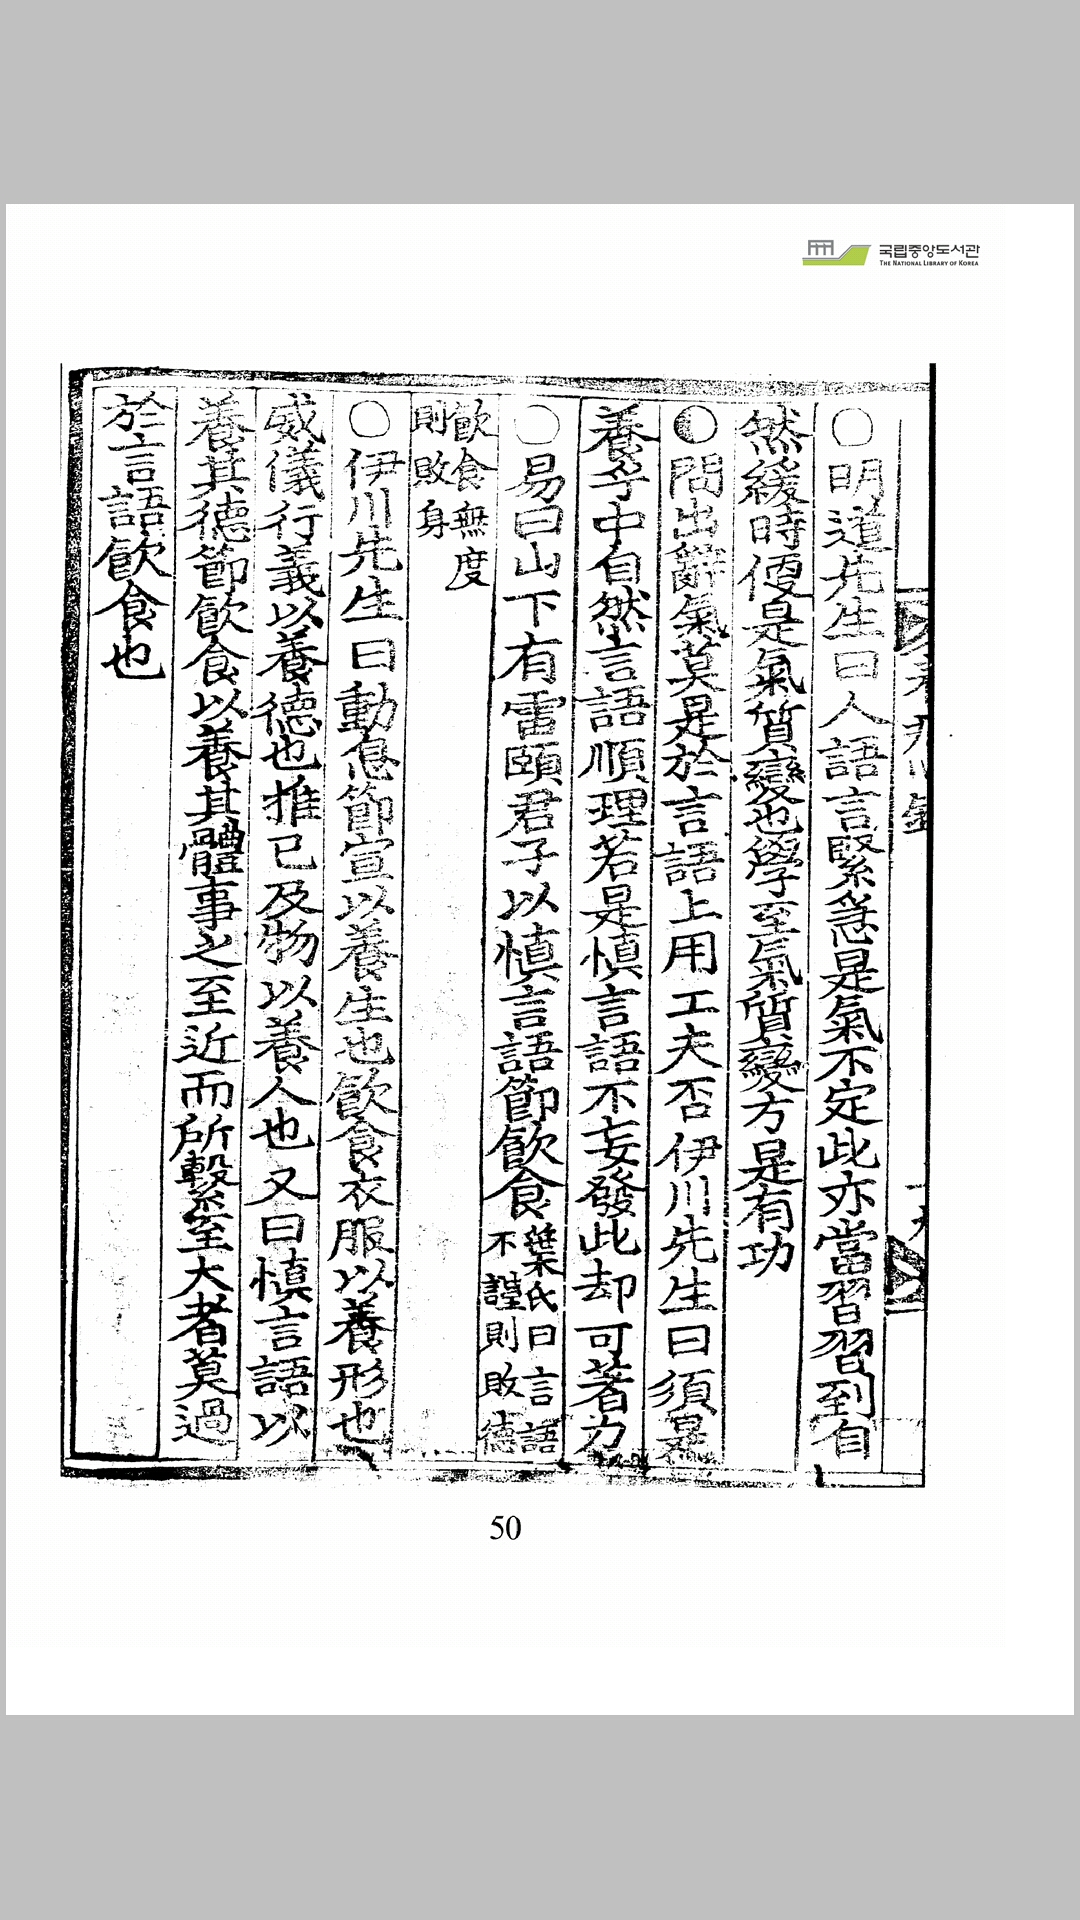 국립중앙도서관
THE NATIONAL LIBRARY OF KOREA
○明道先生曰人語言緊急是氣不定此亦當習習到自
然緩時便是氣質變也學至氣質變方是有功
○問出辭氣莫是於言語上用工夫否伊川先生曰須是
養乎中自然言語順理若是慎言語不妄發此却可著力
○易曰山下有雷頤君子以慎言語節飲食葉氏曰言語不謹則敗德
飲食無度則敗身
○伊川先生曰動息節宣以養生也飲食衣服以養形也
威儀行義以養德也推己及物以養人也又曰慎言語以
養其德節飲食以養其體事之至近而所繫至大者莫過
於言語飲食也
50